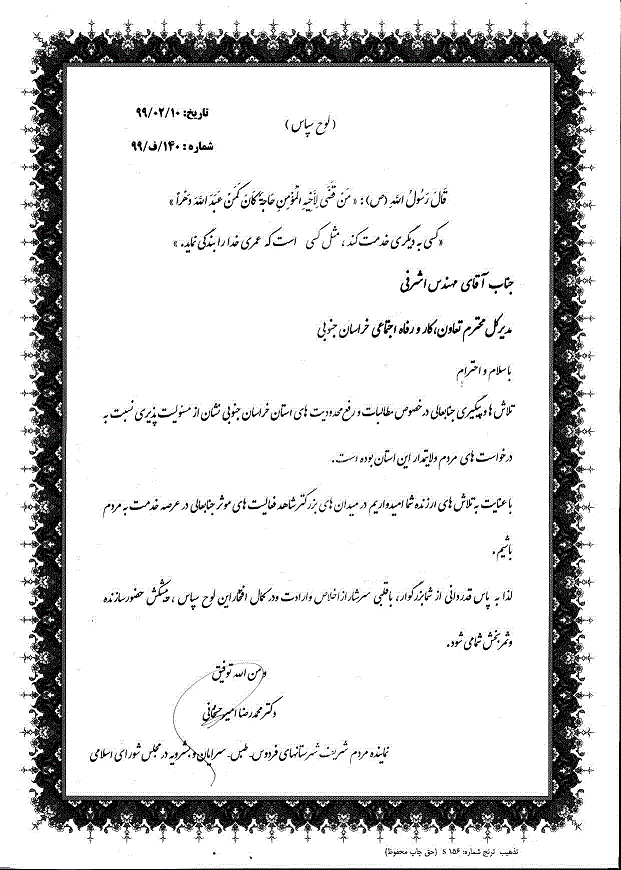 تاریخ: ۹۹/۰۲/۱۰
(لوح سپاس)
شماره: ۱۴۰/ف/۹۹
قَالَ رَسُولُ اللهِ (ص): « مَنْ قَضَى لِأَخِيهِ الْمُؤْمِنِ حَاجَةً كَانَ كَمَنْ عَبَدَ اللهَ دَهْراً »
«کسی به دیگری خدمت کند، مثل کسی است که عمری خدا را بندگی نماید.»
جناب آقای مهندس اشرفی
مدیرکل محترم تعاون، کار و رفاه اجتماعی خراسان جنوبی
باسلام و احترام
تلاش ها و پیگیری جنابعالی در خصوص مطالبات و رفع محدودیت های استان خراسان جنوبی نشان از مسئولیت پذیری نسبت به
درخواست های مردم ولایتمدار این استان بوده است.
با عنایت به تلاش های ارزنده شما امیدواریم در میدان های بزرگتر شاهد فعالیت های موثر جنابعالی در عرصه خدمت به مردم
باشیم.
لذا به پاس قدردانی از شما بزرگوار، با قلبی سرشار از اخلاص و ارادت و در کمال افتخار این لوح سپاس، پیشکش حضور سازنده
و ثمربخش شما می شود.
و من الله توفیق
دکتر محمدرضا امیرحسنخانی
نماینده مردم شریف شهرستانهای فردوس- طبس- سرایان و بشرویه در مجلس شورای اسلامی
تذهیب ترنج شماره: S ۱۵۶ (حق چاپ محفوظ)